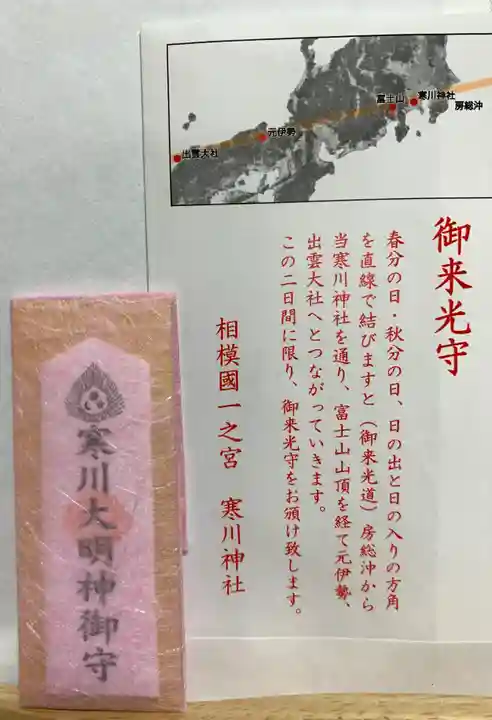 出雲大社
元伊勢
富士山
寒川神社
房総沖
御来光守
春分の日・秋分の日、日の出と日の入りの方角
を直線で結びますと（御来光道）房総沖から
当寒川神社を通り、富士山山頂を経て元伊勢、
出雲大社へとつながっていきます。
この二日間に限り、御来光守をお頒け致します。
相模國一之宮 寒川神社
寒川大明神御守